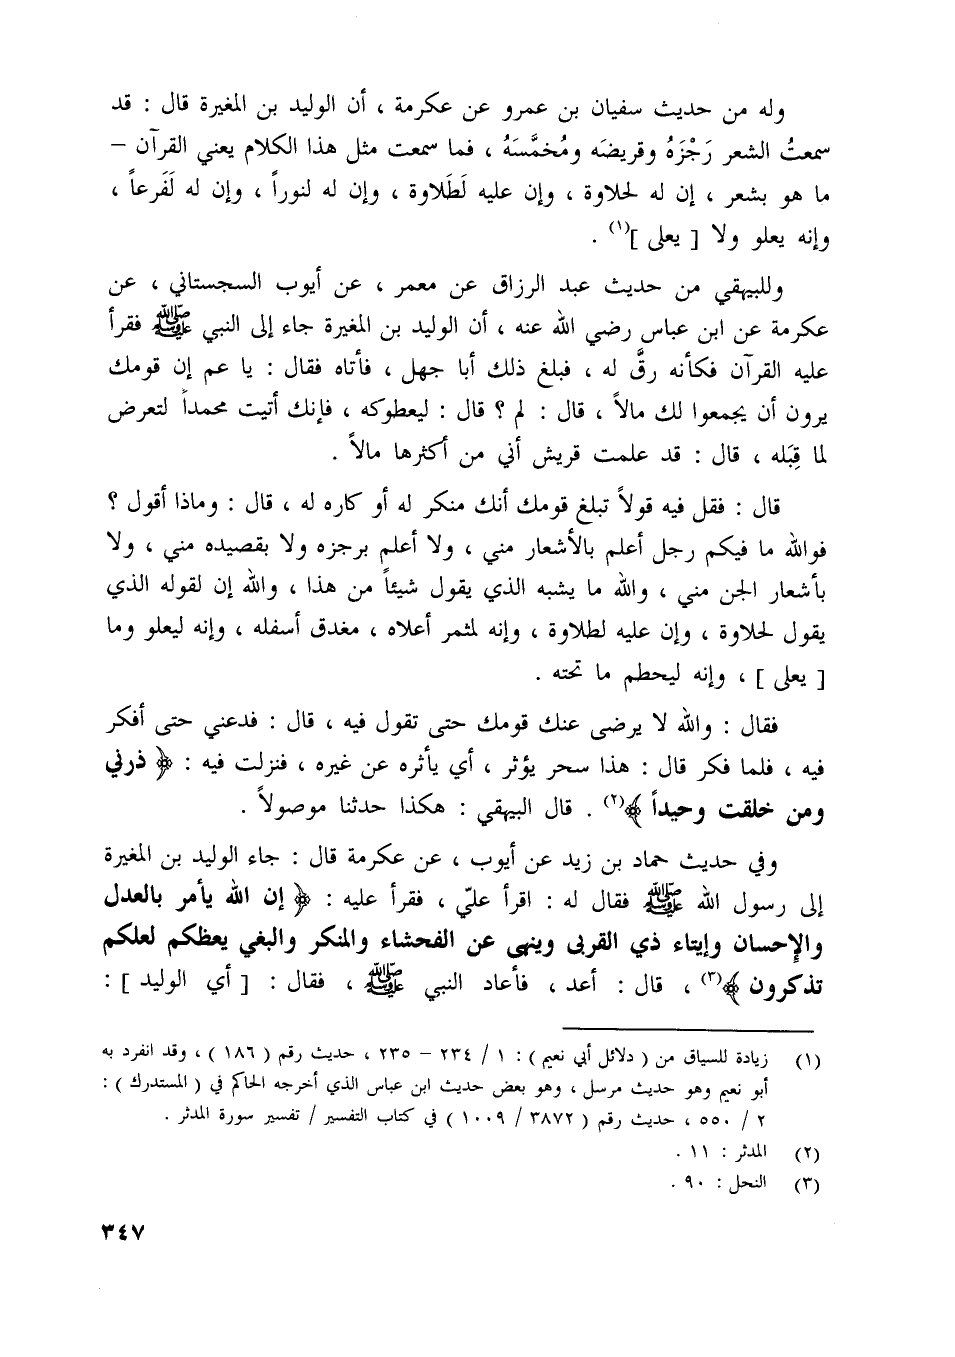 وله من حديث سفيان بن عمرو عن عكرمة ، أن الوليد بن المغيرة قال : قد
سمعتُ الشعر رَجْزَهُ وقريضَه ومُخمَّسَهُ ، فما سمعت مثل هذا الكلام يعني القرآن –
ما هو بشعر ، إن له لحلاوة ، وإن عليه لَطَلاوة ، وإن له لنوراً ، وإن له لَفَرعاً ،
وإنه يعلو ولا [ يعلى ](١) .
وللبيهقي من حديث عبد الرزاق عن معمر ، عن أيوب السجستاني ، عن
عكرمة عن ابن عباس رضي الله عنه ، أن الوليد بن المغيرة جاء إلى النبي ﷺ فقرأ
عليه القرآن فكأنه رقَّ له ، فبلغ ذلك أبا جهل ، فأتاه فقال : يا عم إن قومك
يرون أن يجمعوا لك مالاً ، قال : لم ؟ قال : ليعطوكه ، فإنك أتيت محمداً لتعرض
لما قِبَله ، قال : قد علمت قريش أني من أكثرها مالاً .
قال : فقل فيه قولاً تبلغ قومك أنك منكر له أو كاره له ، قال : وماذا أقول ؟
فوالله ما فيكم رجل أعلم بالأشعار مني ، ولا أعلم برجزه ولا بقصيده مني ، ولا
بأشعار الجن مني ، والله ما يشبه الذي يقول شيئاً من هذا ، والله إن لقوله الذي
يقول لحلاوة ، وإن عليه لطلاوة ، وإنه لمثمر أعلاه ، مغدق أسفله ، وإنه ليعلو وما
[ يعلى ] ، وإنه ليحطم ما تحته .
فقال : والله لا يرضى عنك قومك حتى تقول فيه ، قال : فدعني حتى أفكر
فيه ، فلما فكر قال : هذا سحر يؤثر ، أي يأثره عن غيره ، فنزلت فيه : ﴿ ذرني
ومن خلقت وحيداً ﴾(٢) . قال البيهقي : هكذا حدثنا موصولاً .
وفي حديث حماد بن زيد عن أيوب ، عن عكرمة قال : جاء الوليد بن المغيرة
إلى رسول الله ﷺ فقال له : اقرأ عليّ ، فقرأ عليه : ﴿ إن الله يأمر بالعدل
والإحسان وإيتاء ذي القربى وينهى عن الفحشاء والمنكر والبغي يعظكم لعلكم
تذكرون ﴾(٣) ، قال : أعد ، فأعاد النبي ﷺ ، فقال : [ أي الوليد ] :
(١) زيادة للسياق من ( دلائل أبي نعيم ) : ١ / ٢٣٤ – ٢٣٥ ، حديث رقم ( ١٨٦ ) ، وقد انفرد به
أبو نعيم وهو حديث مرسل ، وهو بعض حديث ابن عباس الذي أخرجه الحاكم في ( المستدرك ) :
٢ / ٥٥٠ ، حديث رقم ( ٣٨٧٢ / ١٠٠٩ ) في كتاب التفسير / تفسير سورة المدثر .
(٢) المدثر : ١١ .
(٣) النحل : ٩٠ .
٣٤٧